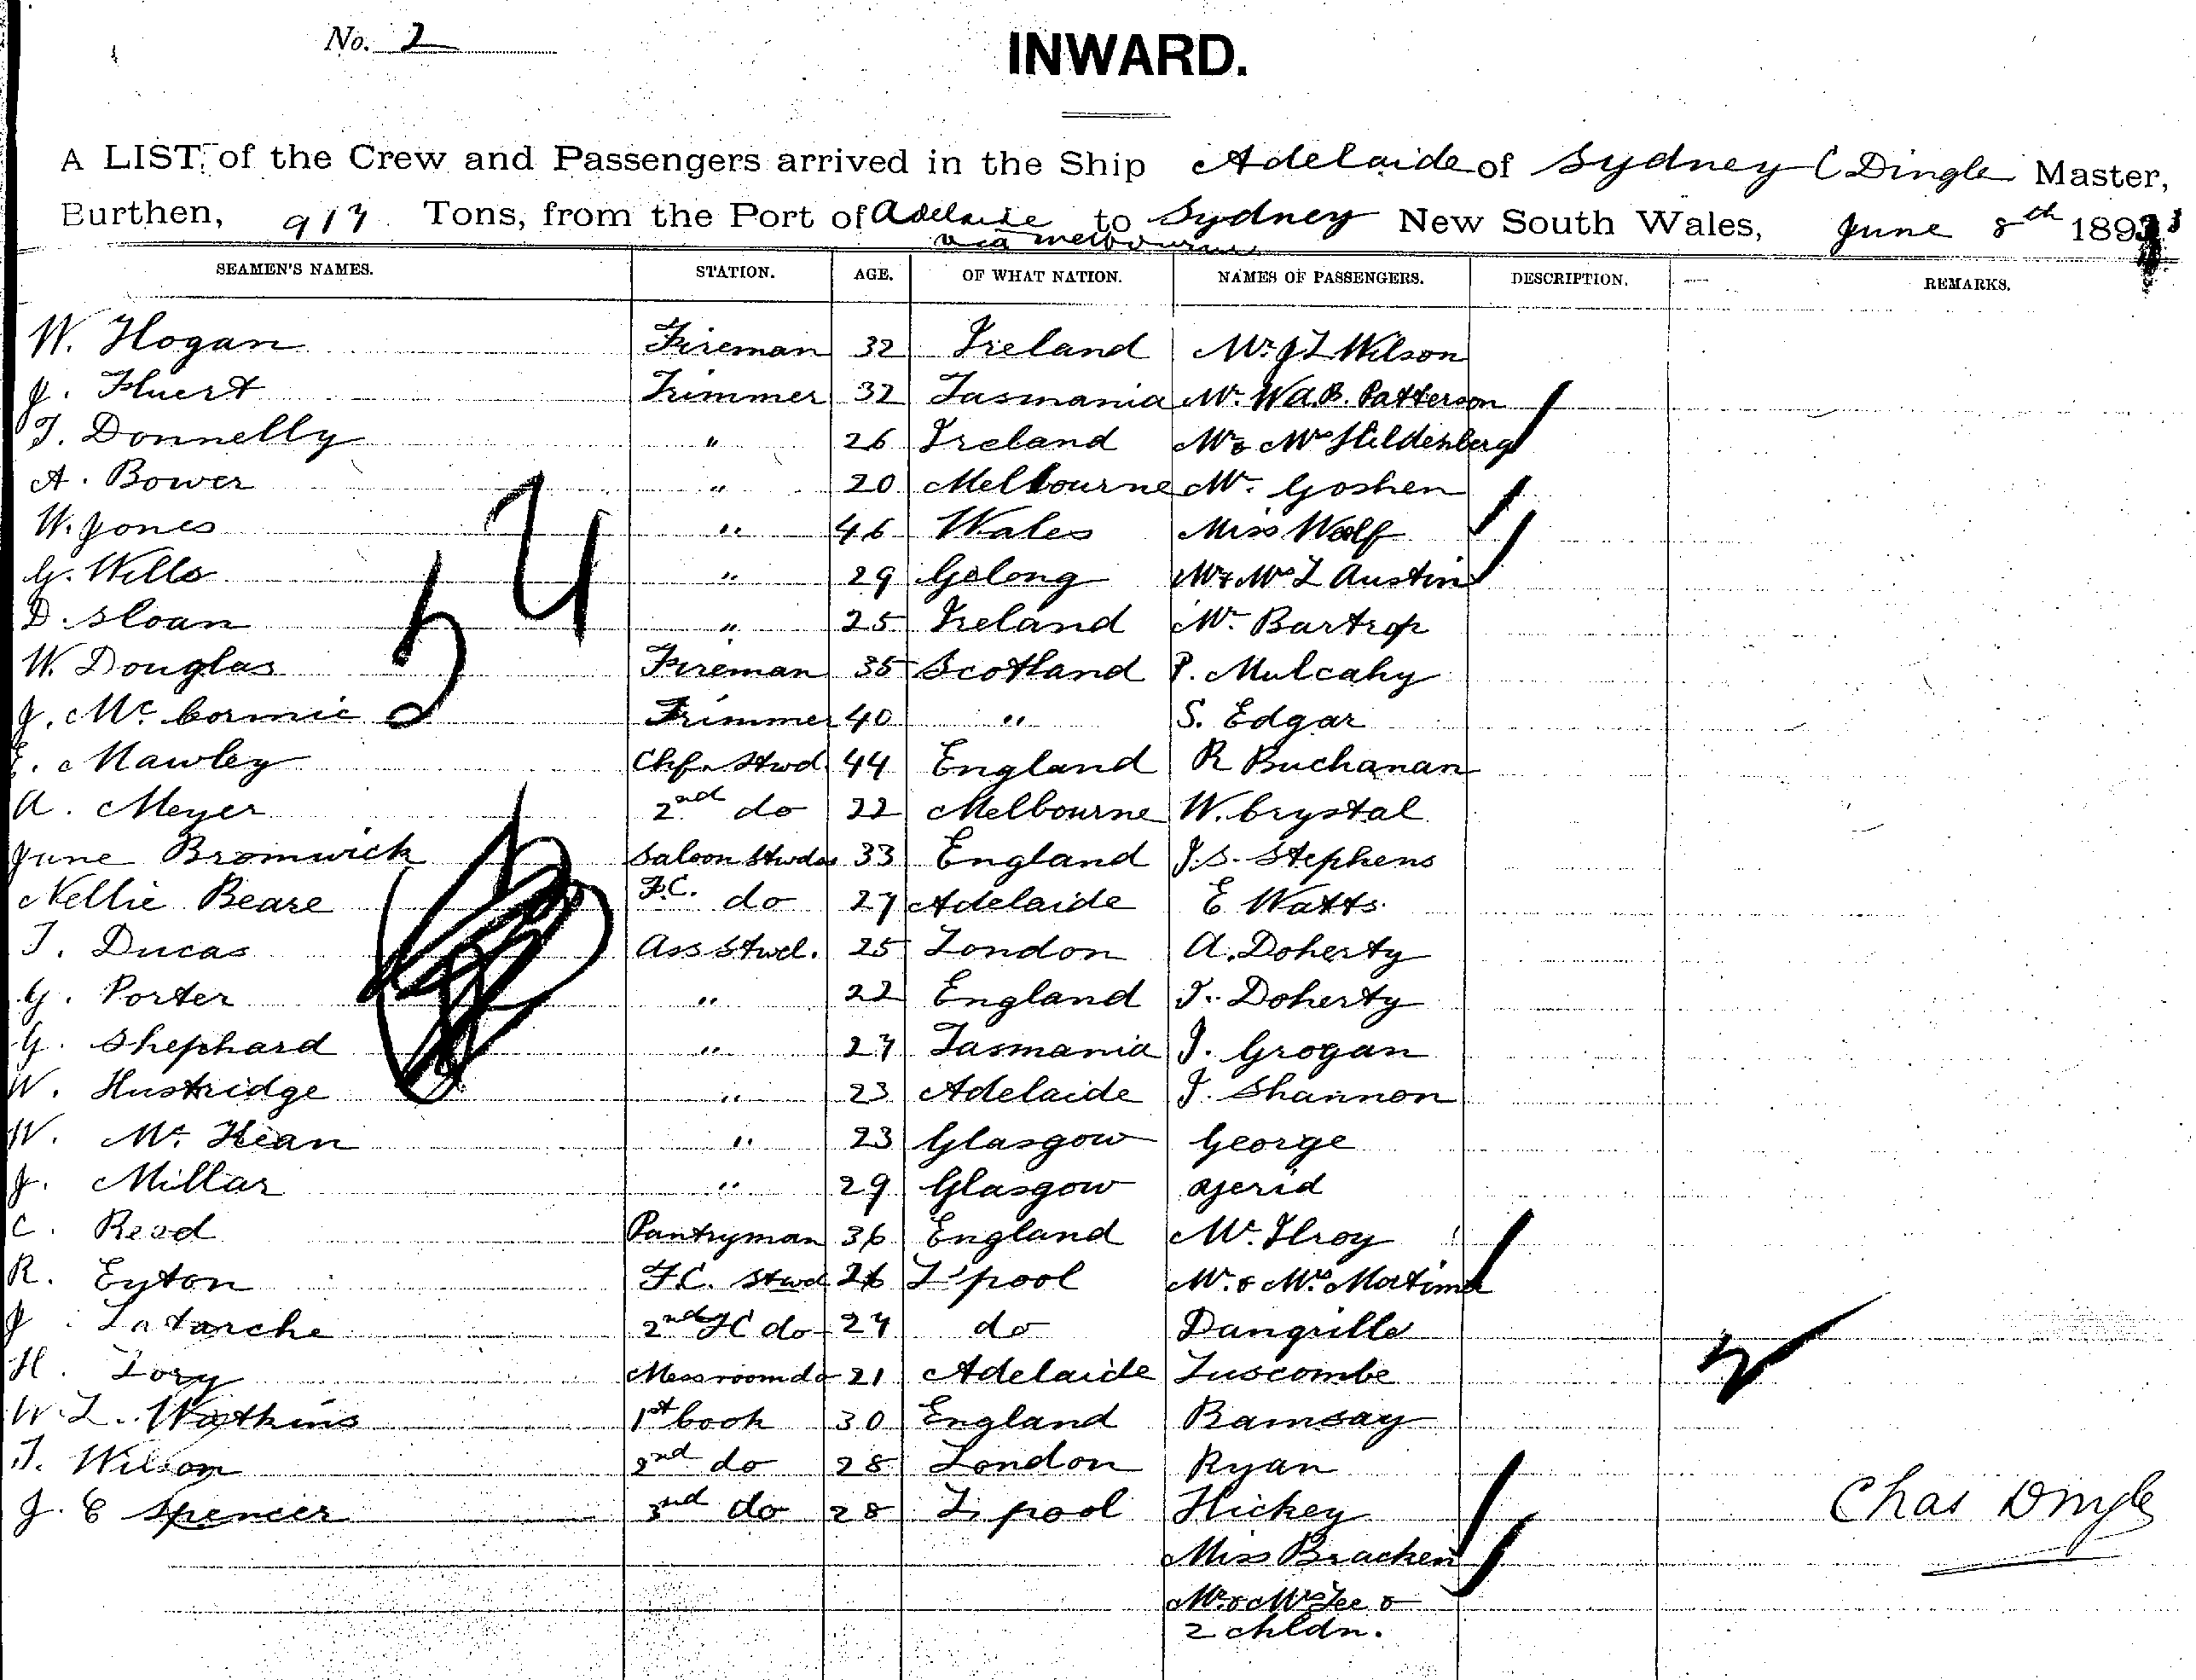 No. 2
INWARD.
A LIST, of the Crew and Passengers arrived in the Ship Adelaide of Sydney C Dingle Master,
Burthen, 917 Tons, from the Port of Adelaide to Sydney New South Wales, June 8th 1893
via Melbourne
SEAMEN'S NAMES. STATION. AGE. OF WHAT NATION. NAMES OF PASSENGERS. DESCRIPTION. REMARKS.
W. Hogan Fireman 32 Ireland Mr. J L Wilson
J. Fluert Trimmer 32 Tasmania Mr. W A.B. Patterson
T. Donnelly " 26 Ireland Mr & Mrs Hildenberg
A. Bower " 20 Melbourne Mr. Goshen
W. Jones " 46 Wales Miss Wolf
G. Wills " 29 Gelong Mr & Mrs L Austin
D. Sloan " 25 Ireland Mr. Bartrop
W. Douglas Fireman 35 Scotland P. Mulcahy
J. Mc Cormic Trimmer 40 " S. Edgar
E. Mawley Chf. Stwd. 44 England R Buchanan
A. Meyer 2nd do 22 Melbourne W. Crystal
June Bromwich Saloon Stwdss 33 England J.S. Stephens
Nellie Beare F.C. do 27 Adelaide E Watts
T. Ducas Ass Stwd. 25 London A. Doherty
G. Porter " 22 England T. Doherty
G. Shephard " 27 Tasmania J. Grogan
W. Hustridge " 23 Adelaide J. Shannon
W. Mc Kean " 23 Glasgow George
J. Millar " 29 Glasgow
C. Read Pantryman 36 England Mc. Ilroy
R. Eyton F.C. Stwd 26 L'pool Mr. & Mrs. Mortimer
J. Latarche 2nd FC do 27 do Dangville
H. Lory Messroom do 21 Adelaide Luscombe
W. L. Watkins 1st Cook 30 England Ramsay
T. Wilson 2nd do 28 London Ryan
J. C Spencer 3rd do 28 L. pool Hickey
Chas Dingle
Miss Bracken
Mr & Mrs Lee &
2 chldn.